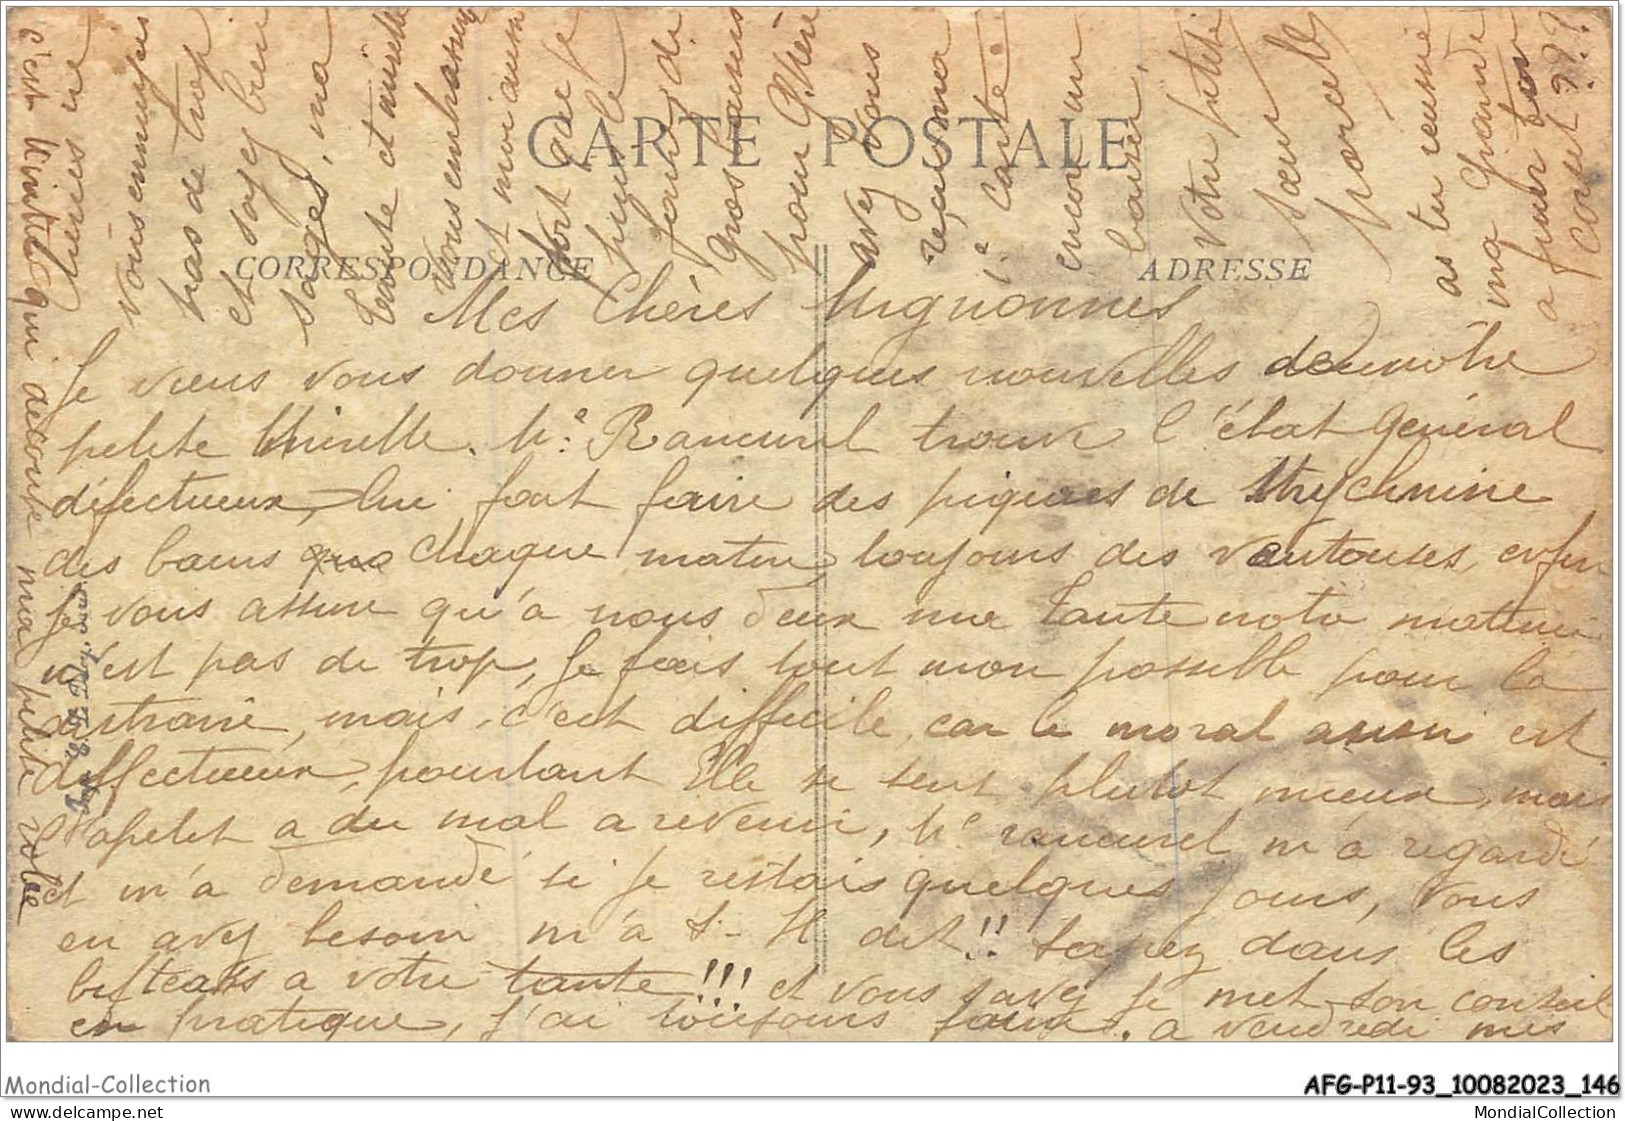 CARTE POSTALE
CORRESPONDANCE
ADRESSE
Mes Chères Mignonnes
Je viens vous donner quelques nouvelles de notre
petite Mireille. Mr Rancurel trouve l'état général
défectueux, lui fait faire des piqures de Strychnine
des bains chaque matin, toujours des ventouses, enfin
je vous assure qu'à nous deux une Tante
n'est pas de trop, Je fais tout mon possible pour la
distraire, mais, c'est difficile, car le moral aussi est
deffectueux, pourtant Elle se sent plutot mieux, mais
l'apetit a du mal a revenir, Mr rancurel m'a regardé
et m'a demandé si Je restais quelques Jours, Vous
en avez besoin m'a t-Il dit!! tapez dans les
bifteaks a votre tante!!! et vous savez Je met son conseil
en pratique, J'ai toujours faim. a vendredi mes
chéries ne
vous ennuyez
pas de trop
et soyez bien
sages, ma
Tante et mireille
vous embrassent
et moi aussi
fort que Je
puis le
faire, de
gros baisers
pour Mémé
avez vous
reçu ma
1e carte.
encore un
baiser.
Votre petite
sœur
Marcelle
as tu réussie
ma Grande
a finir ton
corset ???
c'est Mireille qui découse ma petite robe
Mondial-Collection
AFG-P11-93_10082023_146
Mondial-Collection sur delcampe.net
MondialCollection